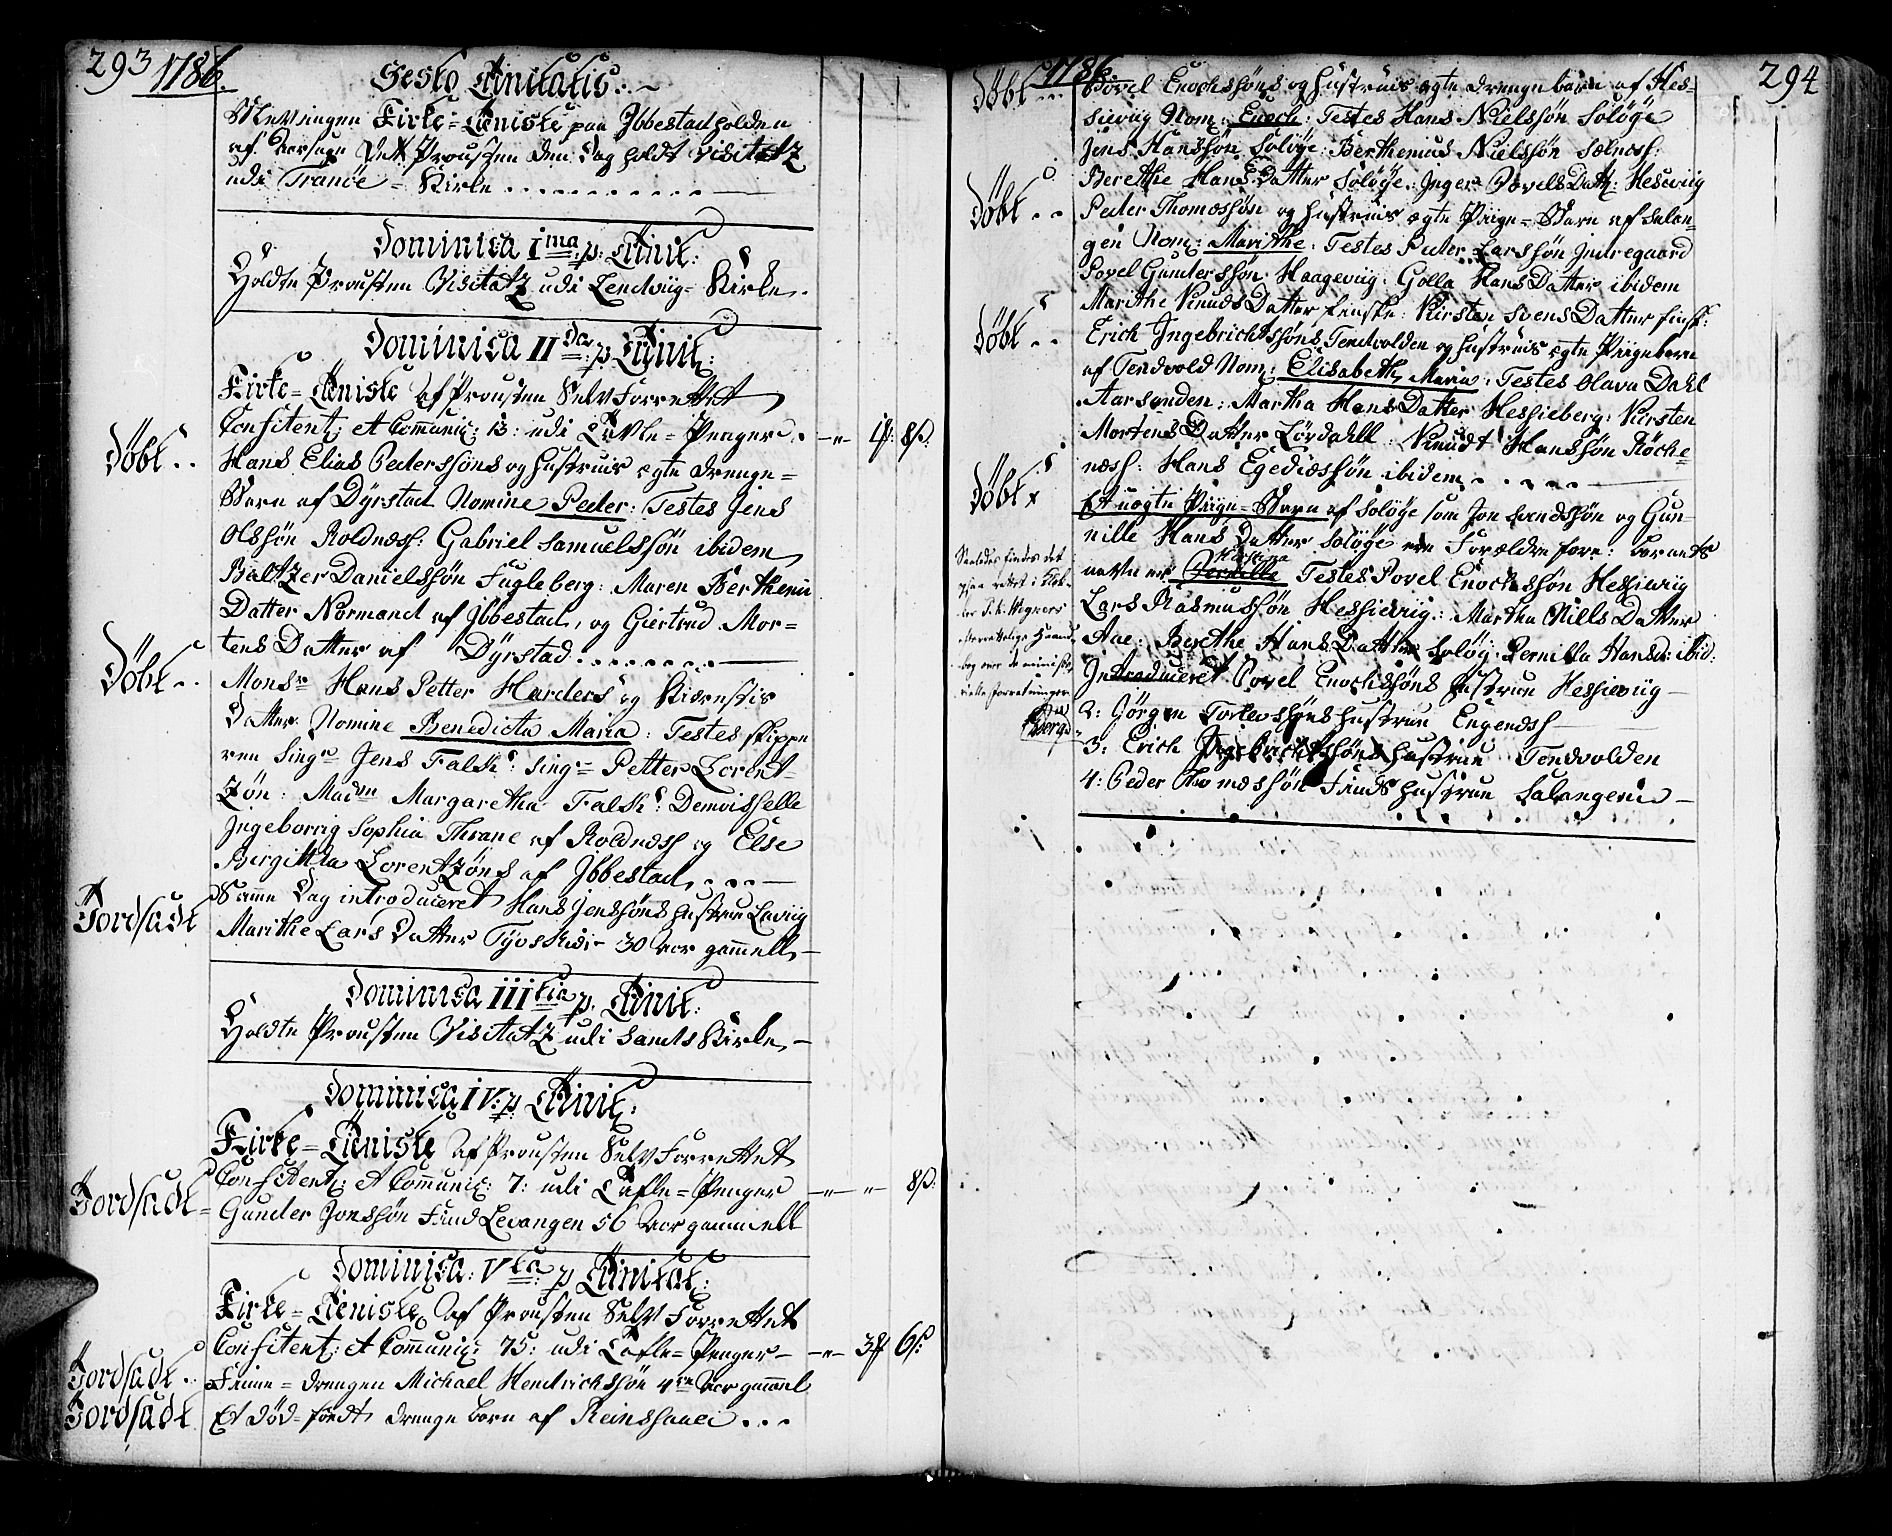 293 1786.
Festo Trinitatis:
Mesningen Kirke=Tieniste paa Ibbestad holden
af Aarsage Det Prousten den Dag holdt Visitatz
udi Tranöe=Kirke
Dominica I.ma p: Trinit:
Holdte Prousten Visitatz udi Lendviig=Kirke.
Dominica II.da p: Trinit:
Kirke=Tieniste af Prousten Selv Forrettet
Confitent: et Communic: 13: udi Tavle=Penger 1 8ß:
Döbt.. Hans Elias Pedersöns og Hustrues ægte Drenge=
Barn af Dyrstad Nomine Peder: Testes Jens
Olssön Roldnæss: Gabriel Samuelssön ibidem
Baltzer Danielssön Fugleberg: Maren Berthenii
Datter Normand af Ibbestad, og Giertrud Mor=
tens Datter af Dyrstad
Döbt.. Monsr Hans Petter Harders og Kiærestis
Datter Nomine Benedicta Maria: Testes Skippe
ren Singr Jens Falk: Singr Petter Lorent
zön: Madm Margaretha Falks: Demoisselle
Ingeborrig Sophia Thrane af Roldnæss og Else
Birgitha Lorentzöns af Ibbestad
Samme Dag introduceret Hans Jenssöns Hustrue Laviig
Jordsadt Marithe Lars Datter Tyvskid- 30 Aar gammell
Dominica III.tia p. Trinit:
Holdte Prousten Visitatz udi Sands Kirke
Dominica IV: p: Trinit:
Kirke=Tieniste af Prousten Selv Forrettet
Confitent: et Communic: 7: udi Tafle=Penger 8ß:
Jordsadt= Gunder Jonssön Fund Levangen 56 Aar gammell
Dominica: V.ta: p Trinitat:
Kirke=Tieniste af Prousten Selv Forrettet
Confitent: et Communic: 75: udi Tafle=Penger 3 6ß:
Jordsadt.. Finne=Drengen Michael Hendrichssön 4re Aar gammel
Jordsadt Et Död=födt Drenge barn af Reinshaaei
1786 294
Döbt.. Povel Enochssöns og Hustrues ægte Drengebarn af Hes=
sieviig Nom: Enoch: Testes Hans Nielssön Solöye
Jens Hanssön Solöye: Berthenius Nielssön Sælnæss:
Berethe Hans Datter Solöye: Inger Povels Datt: Hesieviig
Döbt.. Peder Thomæssön og Hustrues ægte Piige=Barn af Salan=
gen Nom: Marithe: Testes Peder Larssön Indregaard
Povel Gunderssön Haageviig: Golla Hans Datter ibidem
Marithe Knuds Datter Fenske: Kirsten Svens Datter
Döbt.. Erich Ingebrichtssöns Tendvolden og Hustrues ægte Piigebarn
af Tendvold Nom: Elisabeth Maria: Testes Olava Dahl
Aarsanden: Martha Hans Datter Hessieberg: Kirsten
Mortens Datter Lördahll: Knudt Hanssön Röcke=
næss: Hans Egediæssön ibidem
Döbt Et uægte Piige=Barn af Solöye som Jon Svendssön og Gun=
nille Hans Datter Solöye ere Forældre fore: barnets
navn er Pernilla Testes Povel Enochssön Hessieviig
Lars Rasmussön Hessieviig: Martha Nills Datter
Aae: Berethe Hans Datter Solöy. Pernilla Hansd: ibid:
Saaledes findes det
Berge
Introduceret Povel Enochssöns Hustrue Hessieviig
2: Jörgen Hustrue Engenæss
3: Erich Ingebrichtssöns Hustrue Tendvolden
4: Peder Thomæssön Finds Hustrue Salangenie